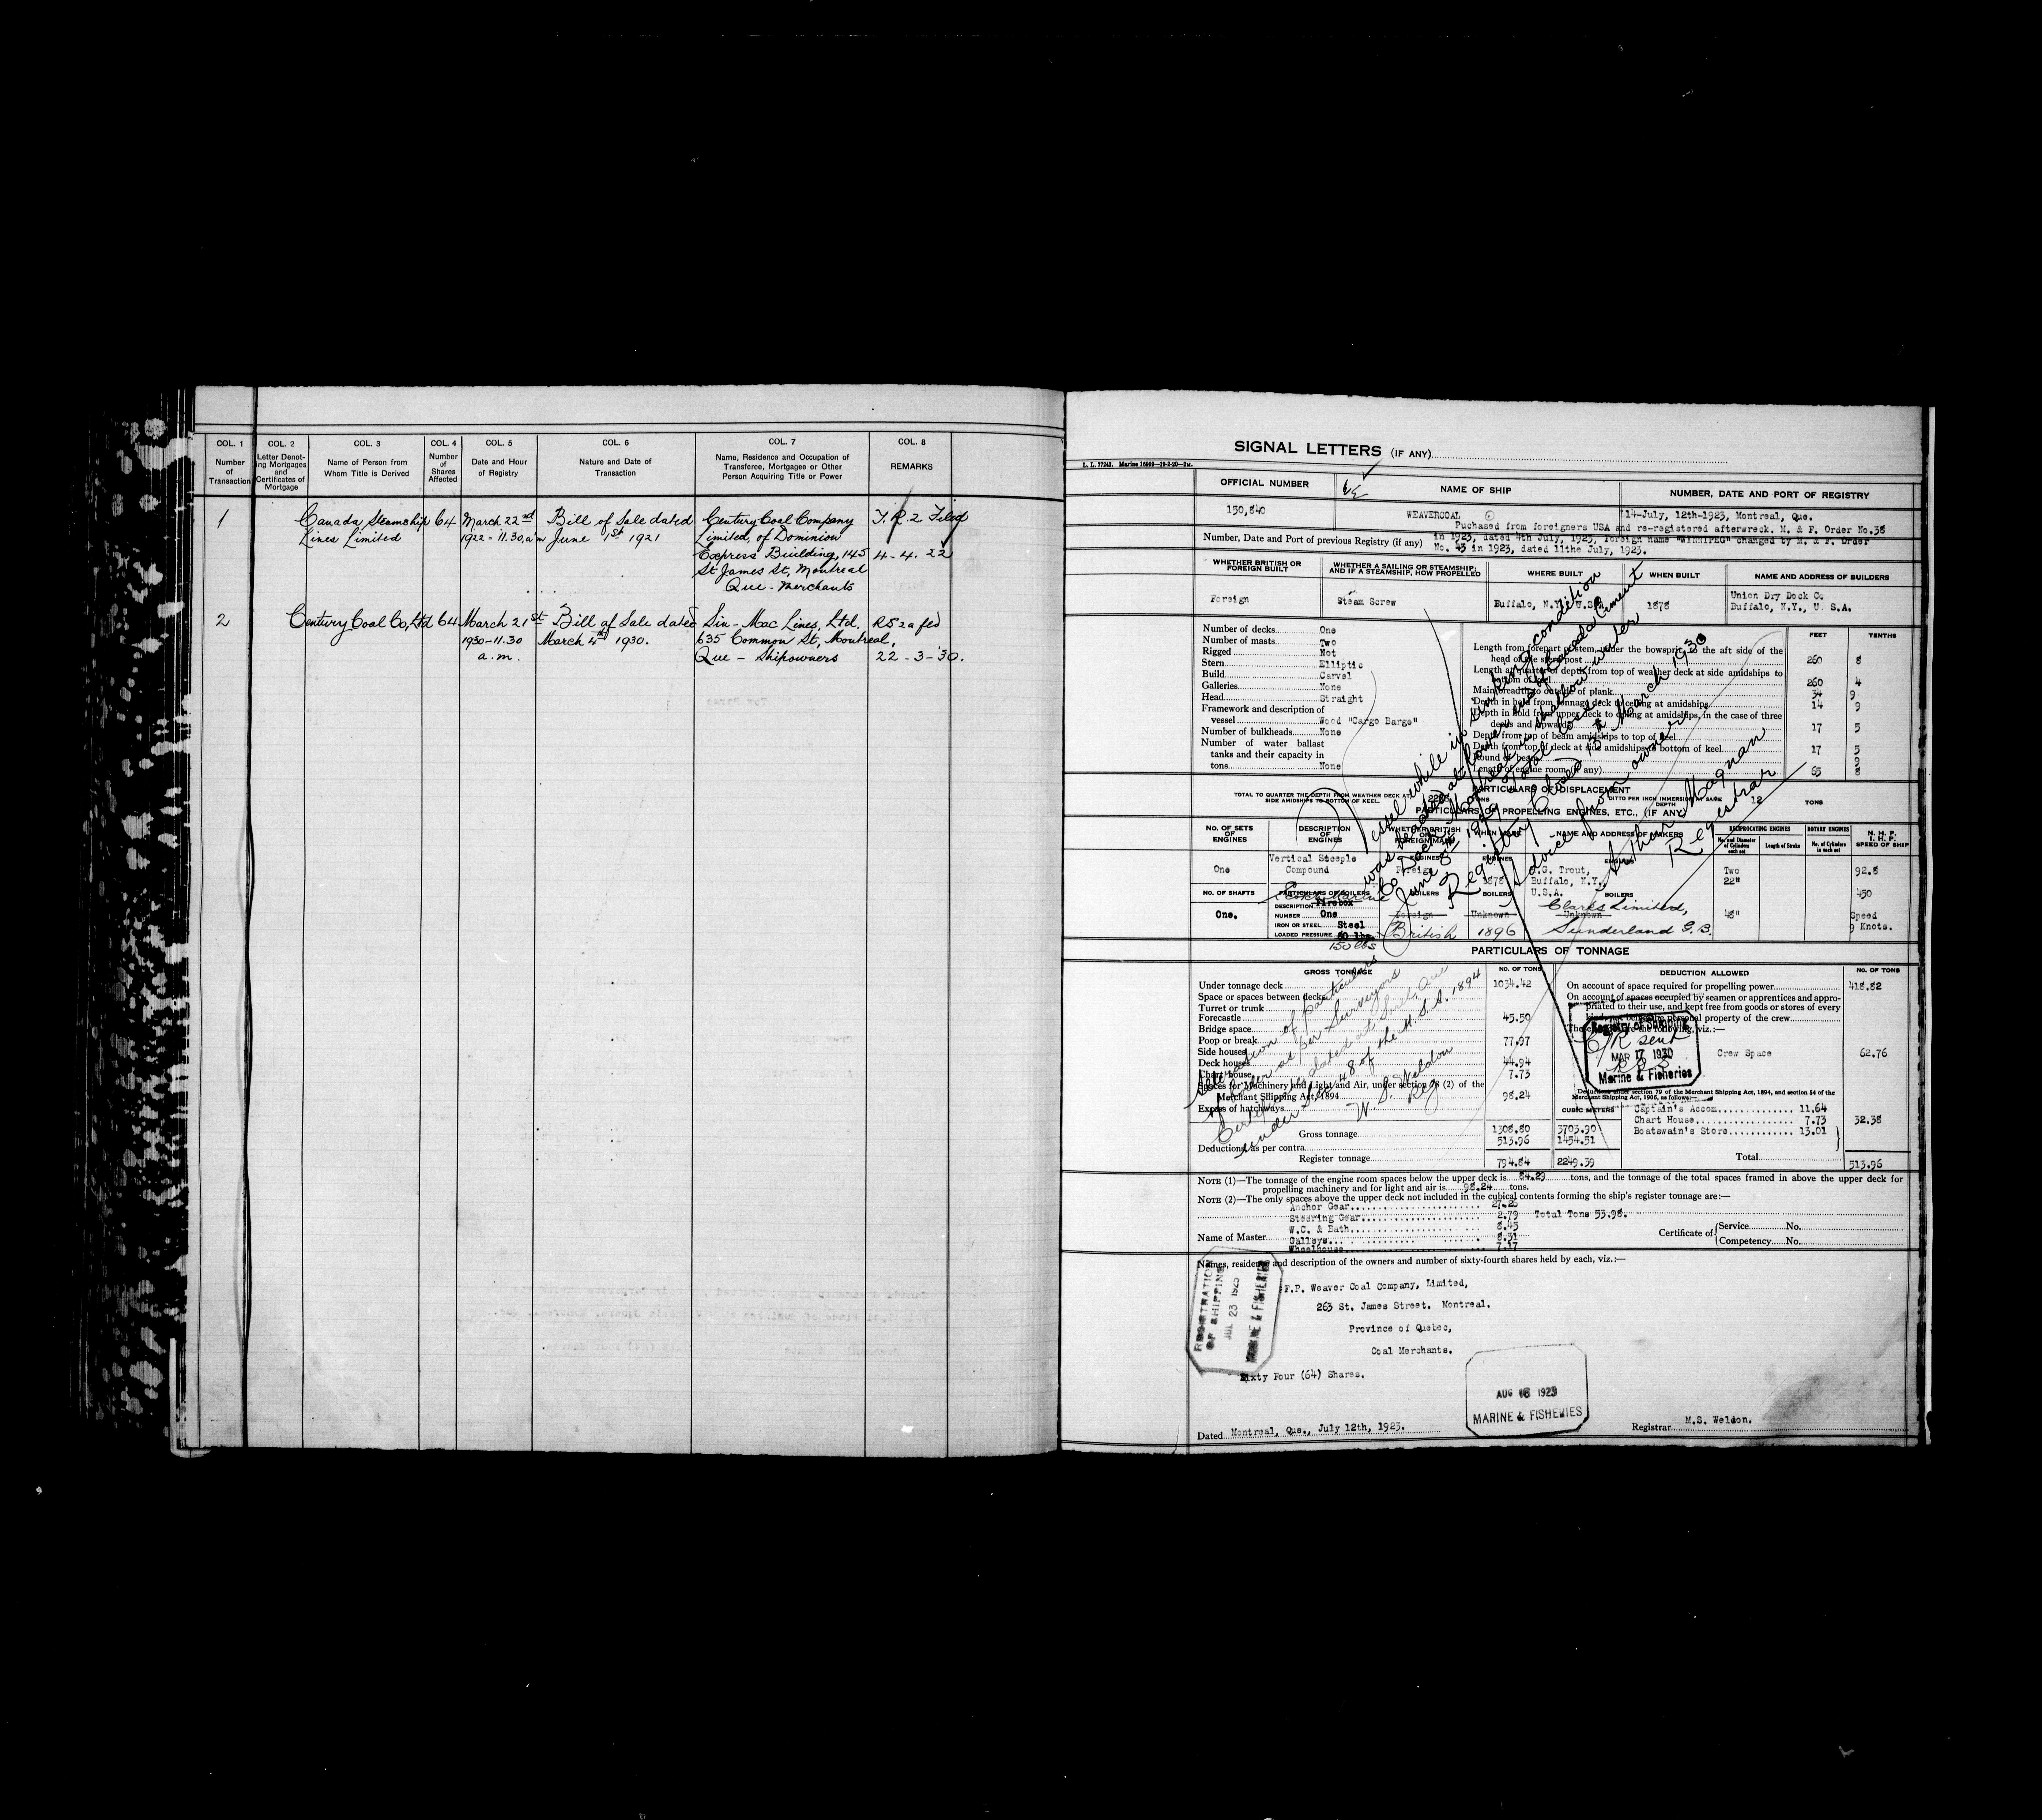 COL. 1
Number
of
Transaction
COL. 2
Letter Denot-
ing Mortgages
and
Certificates of
Mortgage
COL. 3
Name of Person from
Whom Title is Derived
COL. 4
Number
of
Shares
Affected
COL. 5
Date and Hour
of Registry
COL. 6
Nature and Date of
Transaction
COL. 7
Name, Residence and Occupation of
Transferee, Mortgagee or Other
Person Acquiring Title or Power
COL. 8
REMARKS
1
Canada Steamship
Lines Limited
64
March 22nd
1922 - 11.30 a m
Bill of Sale dated
June 1st 1921
Century Coal Company
Limited, of Dominion
Express Building, 145
St James St, Montreal
Que - Merchants
T.R.2 Filed
4-4. 22
2
Century Coal Co, Ltd
64
March 21st
1930 - 11.30
a.m.
Bill of Sale dated
March 4th 1930.
Sin-Mac Lines, Ltd.
635 Common St, Montreal,
Que - Shipowners
22-3-30.
SIGNAL LETTERS (IF ANY)
L. L. 77243. Marine 16909—19-3-20—2M.
OFFICIAL NUMBER
NAME OF SHIP
NUMBER, DATE AND PORT OF REGISTRY
150,840
WEAVERCOAL
14-July, 12th-1923, Montreal, Que.
Puchased from foreigners USA and re-registered afterwreck. M. & F. Order No.38
Number, Date and Port of previous Registry (if any)
in 1923, dated 4th July, 1923, Foreign name "WINNIPEG" changed by M. & F. Order
No. 43 in 1923, dated 11the July, 1923.
WHETHER BRITISH OR
FOREIGN BUILT
WHETHER A SAILING OR STEAMSHIP;
AND IF A STEAMSHIP, HOW PROPELLED
WHERE BUILT
WHEN BUILT
NAME AND ADDRESS OF BUILDERS
Foreign
Steam Screw
Buffalo, N.Y. U.S.A.
1878
Union Dry Dock Co
Buffalo, N.Y., U. S.A.
Number of decks One
Number of masts Two
Rigged Not
Stern Elliptic
Build Carvel
Galleries None
Head Straight
Framework and description of
vessel Wood "Cargo Barge"
Number of bulkheads None
Number of water ballast
tanks and their capacity in
tons None
FEET
TENTHS
Length from forepart of stem, under the bowsprit, to the aft side of the
head of the stern post 260 8
Length at quarter of depth from top of weather deck at side amidships to
bottom of keel 260 4
Main breadth to outside of plank 34 9
Depth in hold from tonnage deck to ceiling at amidships 14 9
Depth in hold from upper deck to ceiling at amidships, in the case of three
decks and upwards 17 5
Depth from top of beam amidships to top of keel
Depth from top of deck at side amidships to bottom of keel 17 5
Round of beam 9
Length of engine room (if any) 65 8
Vessel while in sinking condition
June 8th 1929 Total loss
Registry Closed 13th March 1930
Advice from owner
Arthur Magnan
Registrar
PARTICULARS OF DISPLACEMENT
TOTAL TO QUARTER THE DEPTH FROM WEATHER DECK AT
SIDE AMIDSHIPS TO BOTTOM OF KEEL.
TONS
DITTO PER INCH IMMERSION AT SAME
DEPTH
12
TONS
PARTICULARS OF PROPELLING ENGINES, ETC., (IF ANY)
NO. OF SETS
OF
ENGINES
DESCRIPTION
OF
ENGINES
WHETHER BRITISH
OR
FOREIGN MADE
WHEN MADE
NAME AND ADDRESS OF MAKERS
RECIPROCATING ENGINES
No. and Diameter
of Cylinders
each set
Length of Stroke
ROTARY ENGINES
No. of Cylinders
in each set
N. H. P.
I. H. P.
SPEED OF SHIP
One
Vertical Steeple
Compound
ENGINES
Foreign
ENGINES
1878
ENGINES
Trout,
Buffalo, N.Y.,
U.S.A.
Two
22"
92.8
450
NO. OF SHAFTS
PARTICULARS OF BOILERS
BOILERS
BOILERS
BOILERS
One.
DESCRIPTION Firebox
NUMBER One
IRON OR STEEL Steel
LOADED PRESSURE 80 lbs.
150 lbs
Foreign
British
Unknown
1896
Unknown
Clarks Limited,
Sunderland G.B.
Speed
9 Knots.
PARTICULARS OF TONNAGE
GROSS TONNAGE
NO. OF TONS
DEDUCTION ALLOWED
NO. OF TONS
Under tonnage deck 1034.42
Space or spaces between decks
Turret or trunk
Forecastle 45.50
Bridge space
Poop or break 77.97
Side houses
Deck houses 44.94
Chart house 7.73
Spaces for Machinery and Light and Air, under section 78 (2) of the
Merchant Shipping Act, 1894 98.24
Excess of hatchways
Gross tonnage 1308.80
Deductions, as per contra 513.96
Register tonnage 794.84
CUBIC METERS
3703.90
1454.51
2249.39
Alteration of particulars
of boiler as per Surveyors
under Sec 48 of the M.S.A. 1894
W. S. Weldon
Reg
On account of space required for propelling power 418.82
On account of spaces occupied by seamen or apprentices and appro-
priated to their use, and kept free from goods or stores of every
kind, not being the personal property of the crew
Crew Space 62.76
Registry of Shipping
C/R sent
MAR 17 1930
Marine & Fisheries
Deductions under section 79 of the Merchant Shipping Act, 1894, and section 54 of the
Merchant Shipping Act, 1906, as follows:—
Captain's Accom. 11.64
Chart House 7.73
Boatswain's Store 13.01
32.38
Total 513.96
NOTE (1)—The tonnage of the engine room spaces below the upper deck is 84.29 tons, and the tonnage of the total spaces framed in above the upper deck for
propelling machinery and for light and air is 98.24 tons.
NOTE (2)—The only spaces above the upper deck not included in the cubical contents forming the ship's register tonnage are:—
Anchor Gear 27.26
Steering Gear 2.79 Total Tons 53.98.
W.C. & Bath 8.45
Name of Master Galleys 8.31
Wheelhouse 7.17
Certificate of
Service No.
Competency No.
Names, residence and description of the owners and number of sixty-fourth shares held by each, viz.:—
F.P. Weaver Coal Company, Limited,
263 St. James Street. Montreal.
Province of Quebec,
Coal Merchants.
Sixty Four (64) Shares.
REGISTRATION
OF SHIPPING
JUL 23 1923
MARINE & FISHERIES
AUG 18 1923
MARINE & FISHERIES
Dated Montreal, Que., July 12th, 1923.
Registrar M.S. Weldon.